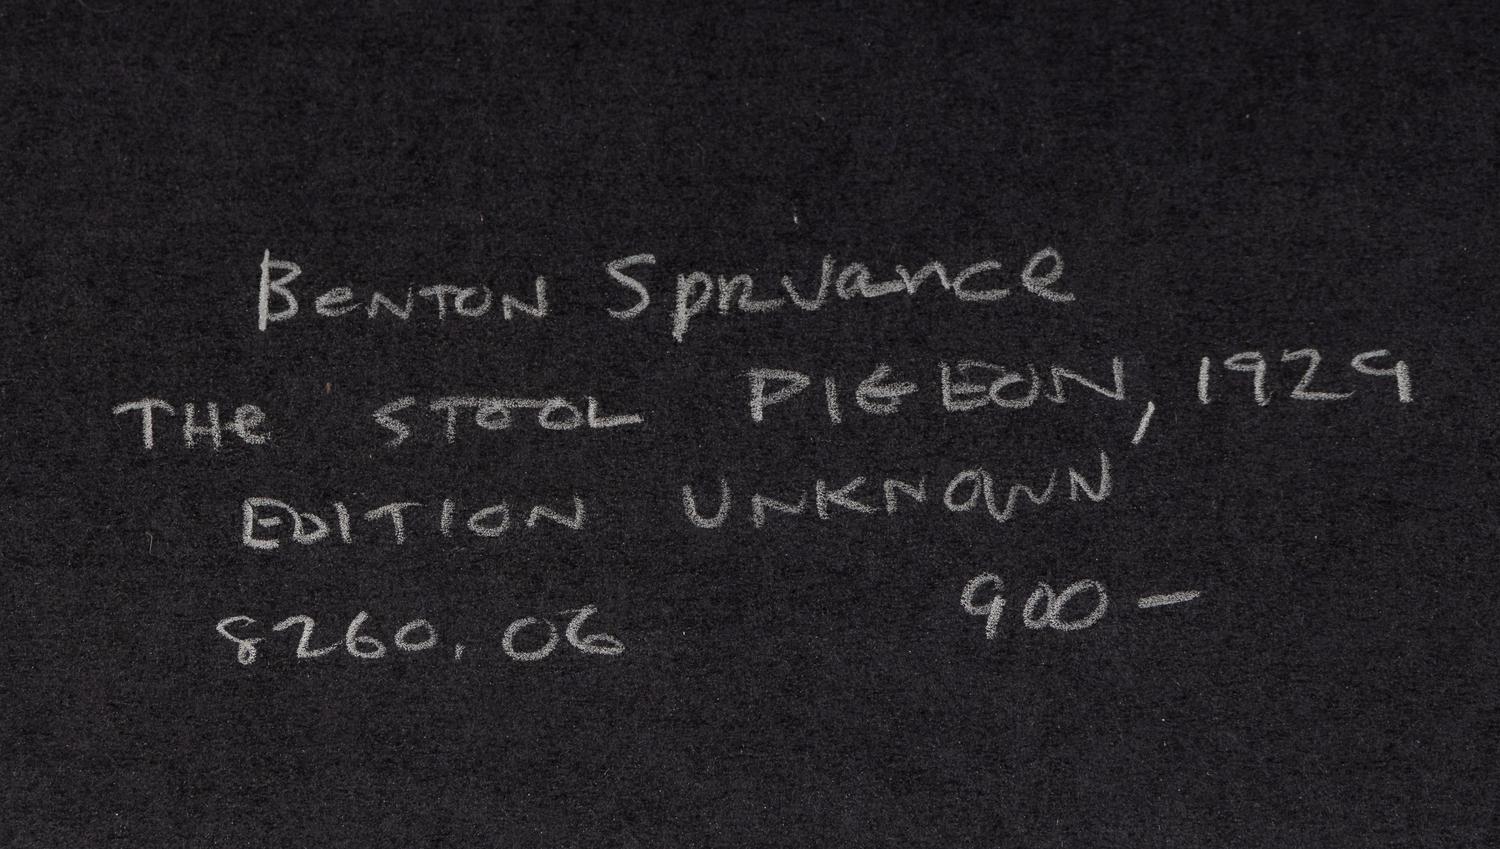 Benton Spruance
The STOOL PIGEON, 1929
EDITION UNKNOWN
8260.06 900-